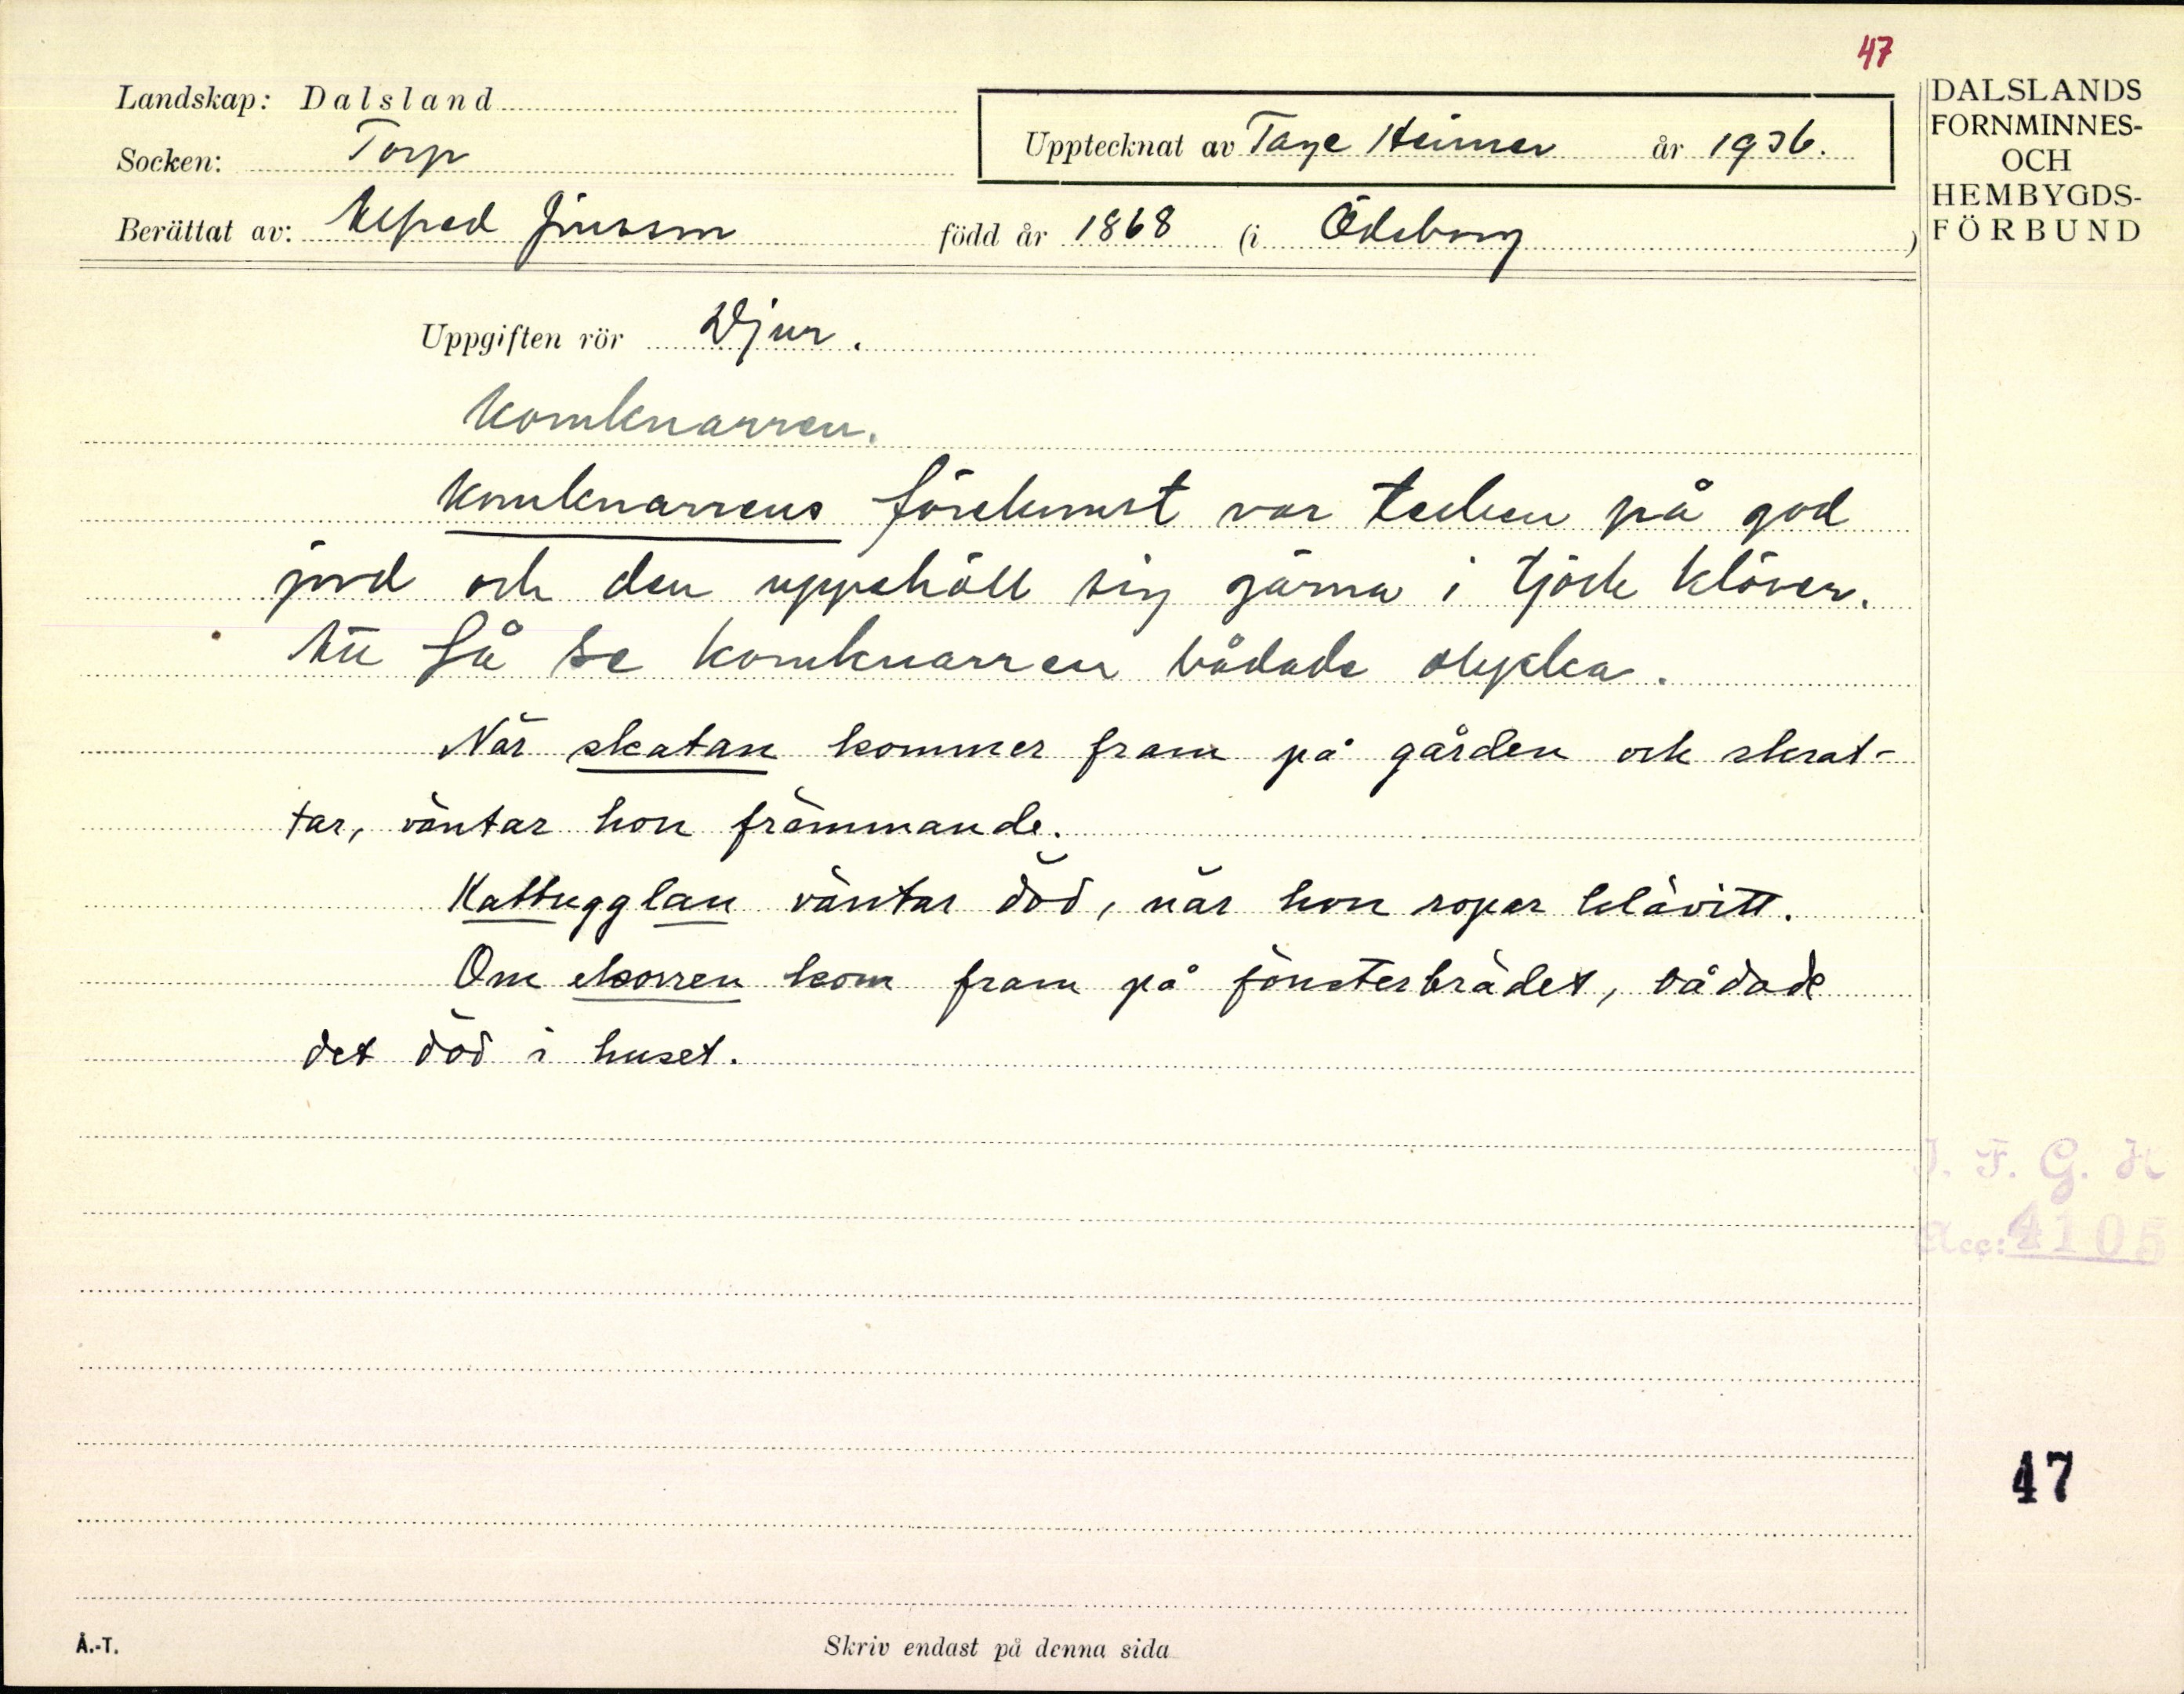 47
Landskap: Dalsland
Socken: Torp
Upptecknat av Tage Heimer år 1936.
Berättat av: Alfred Jonsson född år 1868 (i Ödeborg)
DALSLANDS
FORNMINNES-
OCH
HEMBYGDS-
FÖRBUND
Uppgiften rör Djur.
Kornknarren.
Kornknarrens förekomst var tecken på god
jord och den uppehöll sig gärna i tjock klöver.
Att få se kornknarren bådade olycka.
När skatan kommer fram på gården och skrat-
tar, väntar hon främmande.
Kattugglan väntar död, när hon ropar klävitt.
Om ekorren kom fram på fönsterbrädet, bådade
det död i huset.
I. F. G. H
Acc: 4105
47
Å.-T.
Skriv endast på denna sida